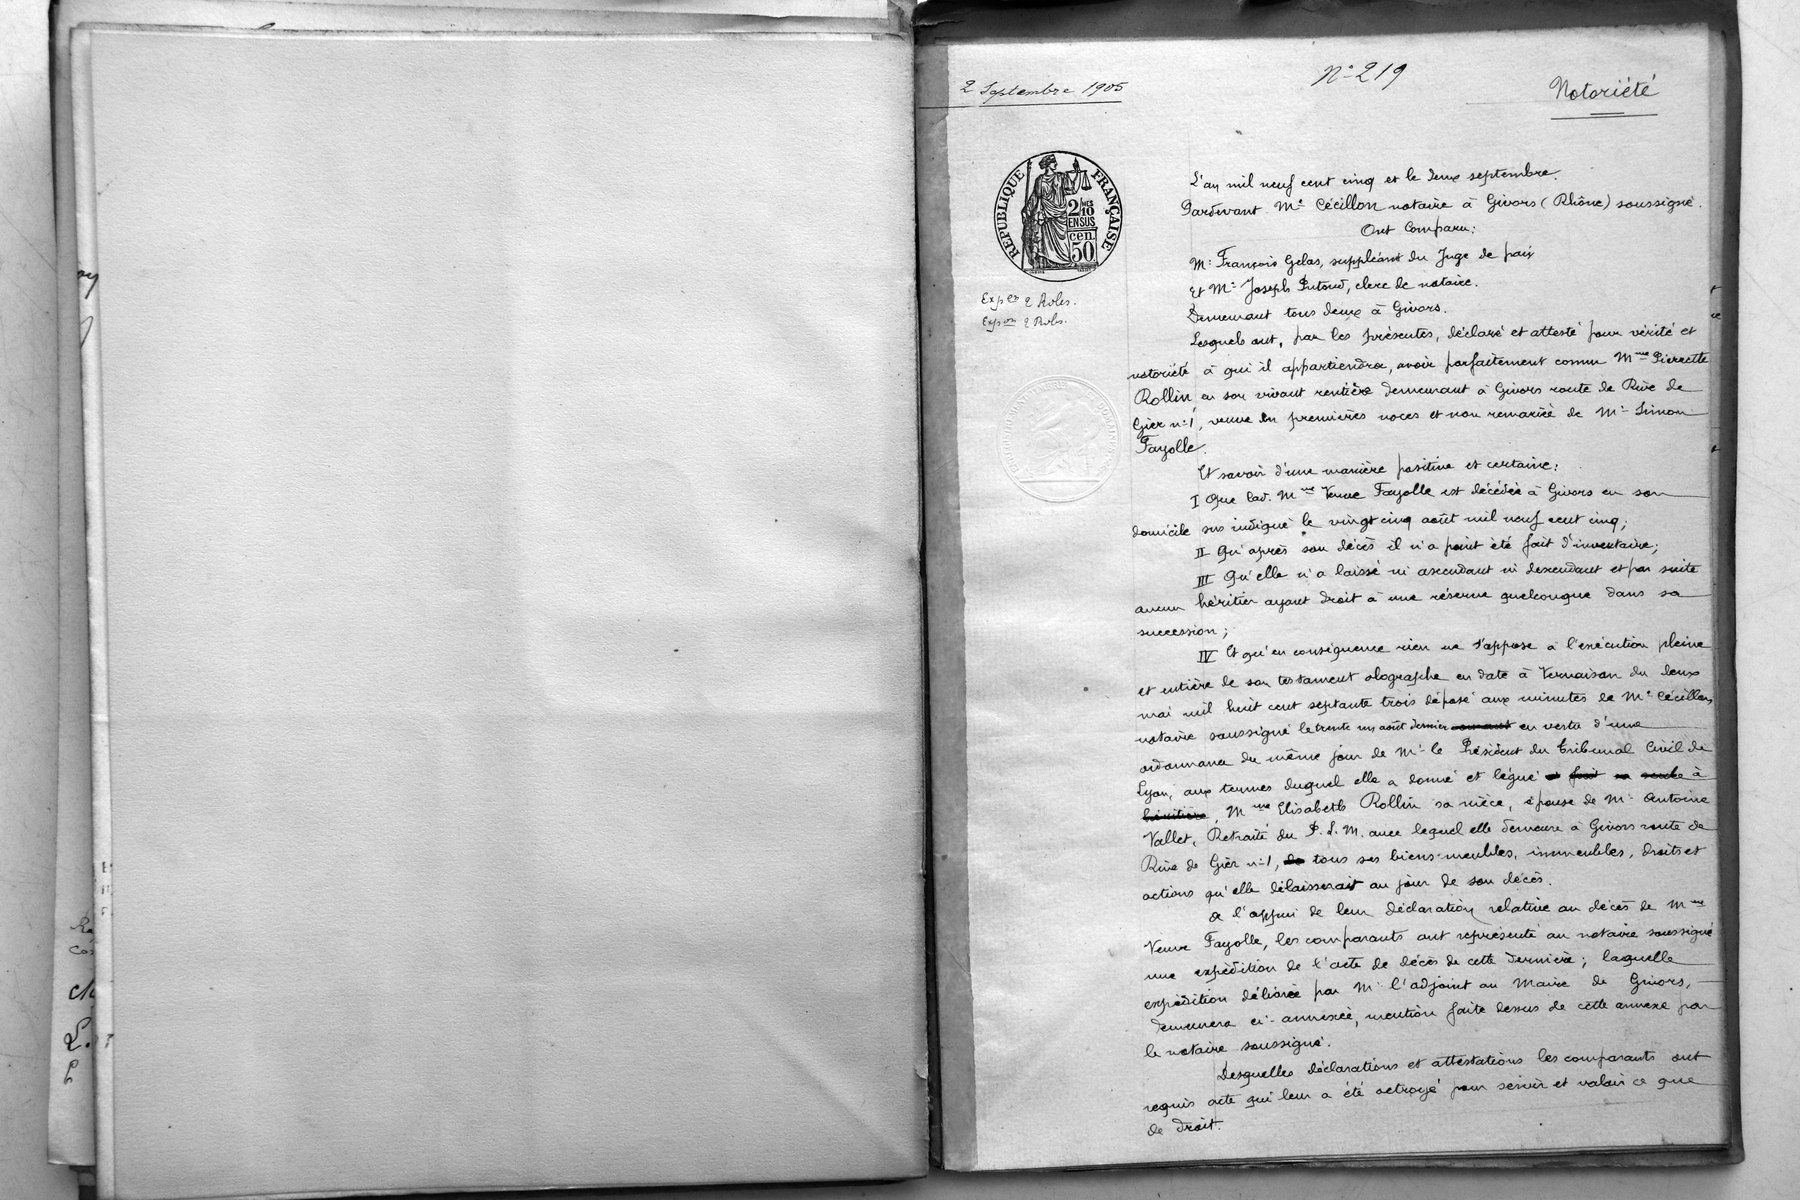 2 Septembre 1905
N° 219
Notoriété
RÉPUBLIQUE FRANÇAISE
2/10 EN SUS
50 cen.
Exp on 2 Rôles.
Exp on 2 Rôles.
L'an mil neuf cent cinq et le deux septembre.
Pardevant Me Cécillon notaire à Givors (Rhône) soussigné.
Ont Comparu:
Mr François Gelas, suppléant du Juge de paix
Et Mr Joseph, clerc de notaire.
Demeurant tous deux à Givors.
Lesquels ont, par les présentes, déclaré et attesté pour vérité et
notoriété à qui il appartiendra, avoir parfaitement connu Mme Pierrette
Rollin en son vivant rentière demeurant à Givors route de Rive de
Gier n°1, veuve en premières noces et non remariée de Mr Simon
Fayolle.
Et savoir d'une manière positive et certaine:
I Que lad. Mme Veuve Fayolle est décédée à Givors en son
domicile sus indiqué le vingt cinq août mil neuf cent cinq;
II Qu'après son décès il n'a point été fait d'inventaire;
III Qu'elle n'a laissé ni ascendant ni descendant et par suite
aucun héritier ayant droit à une réserve quelconque dans sa
succession;
IV Et qu'en conséquence rien ne s'oppose à l'exécution pleine
et entière de son testament olographe en date à Vernaison du deux
mai mil huit cent septante trois déposé aux minutes de Me Cécillon
notaire soussigné le trente un août dernier en vertu d'une
ordonnance du même jour de Mr le Président du Tribunal Civil de
Lyon, aux termes duquel elle a donné et légué à
héritière, Mme Elisabeth Rollin sa nièce, épouse de Mr Antoine
Vallet, Retraité du P.L.M. avec lequel elle demeure à Givors route de
Rive de Gier n°1, de tous ses biens meubles, immeubles, droits et
actions qu'elle délaisserait au jour de son décès.
A l'appui de leur déclaration relative au décès de Mme
Veuve Fayolle, les comparants ont représenté au notaire soussigné
une expédition de l'acte de décès de cette dernière; laquelle
expédition délivrée par Mr l'adjoint au Maire de Givors,
demeurera ci-annexée, mention faite dessus de cette annexe par
le notaire soussigné.
Desquelles déclarations et attestations les comparants ont
requis acte qui leur a été octroyé pour servir et valoir ce que
de droit.